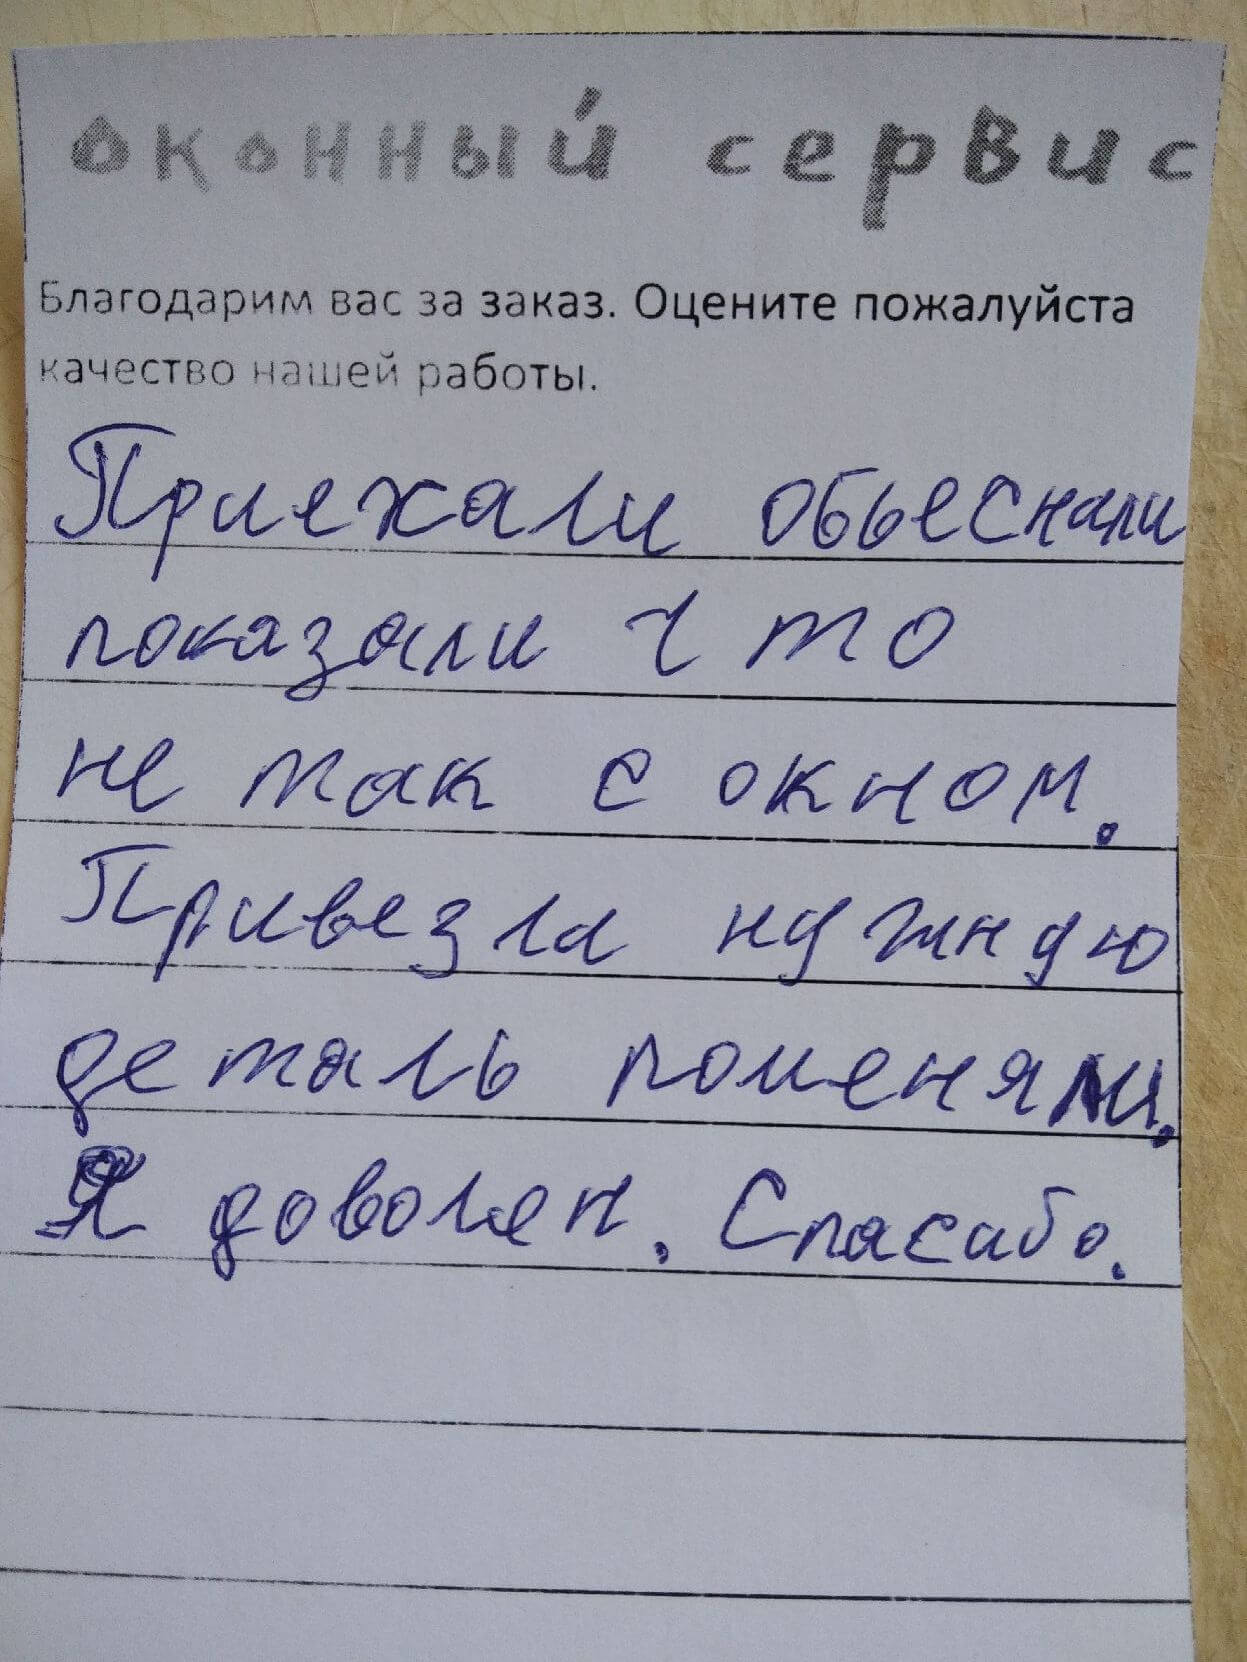 оконный сервис
Благодарим вас за заказ. Оцените пожалуйста
качество нашей работы.
Приехали обьеснили
показали что
не так с окном.
Привезли нужную
деталь поменяли.
Я доволен. Спасибо.